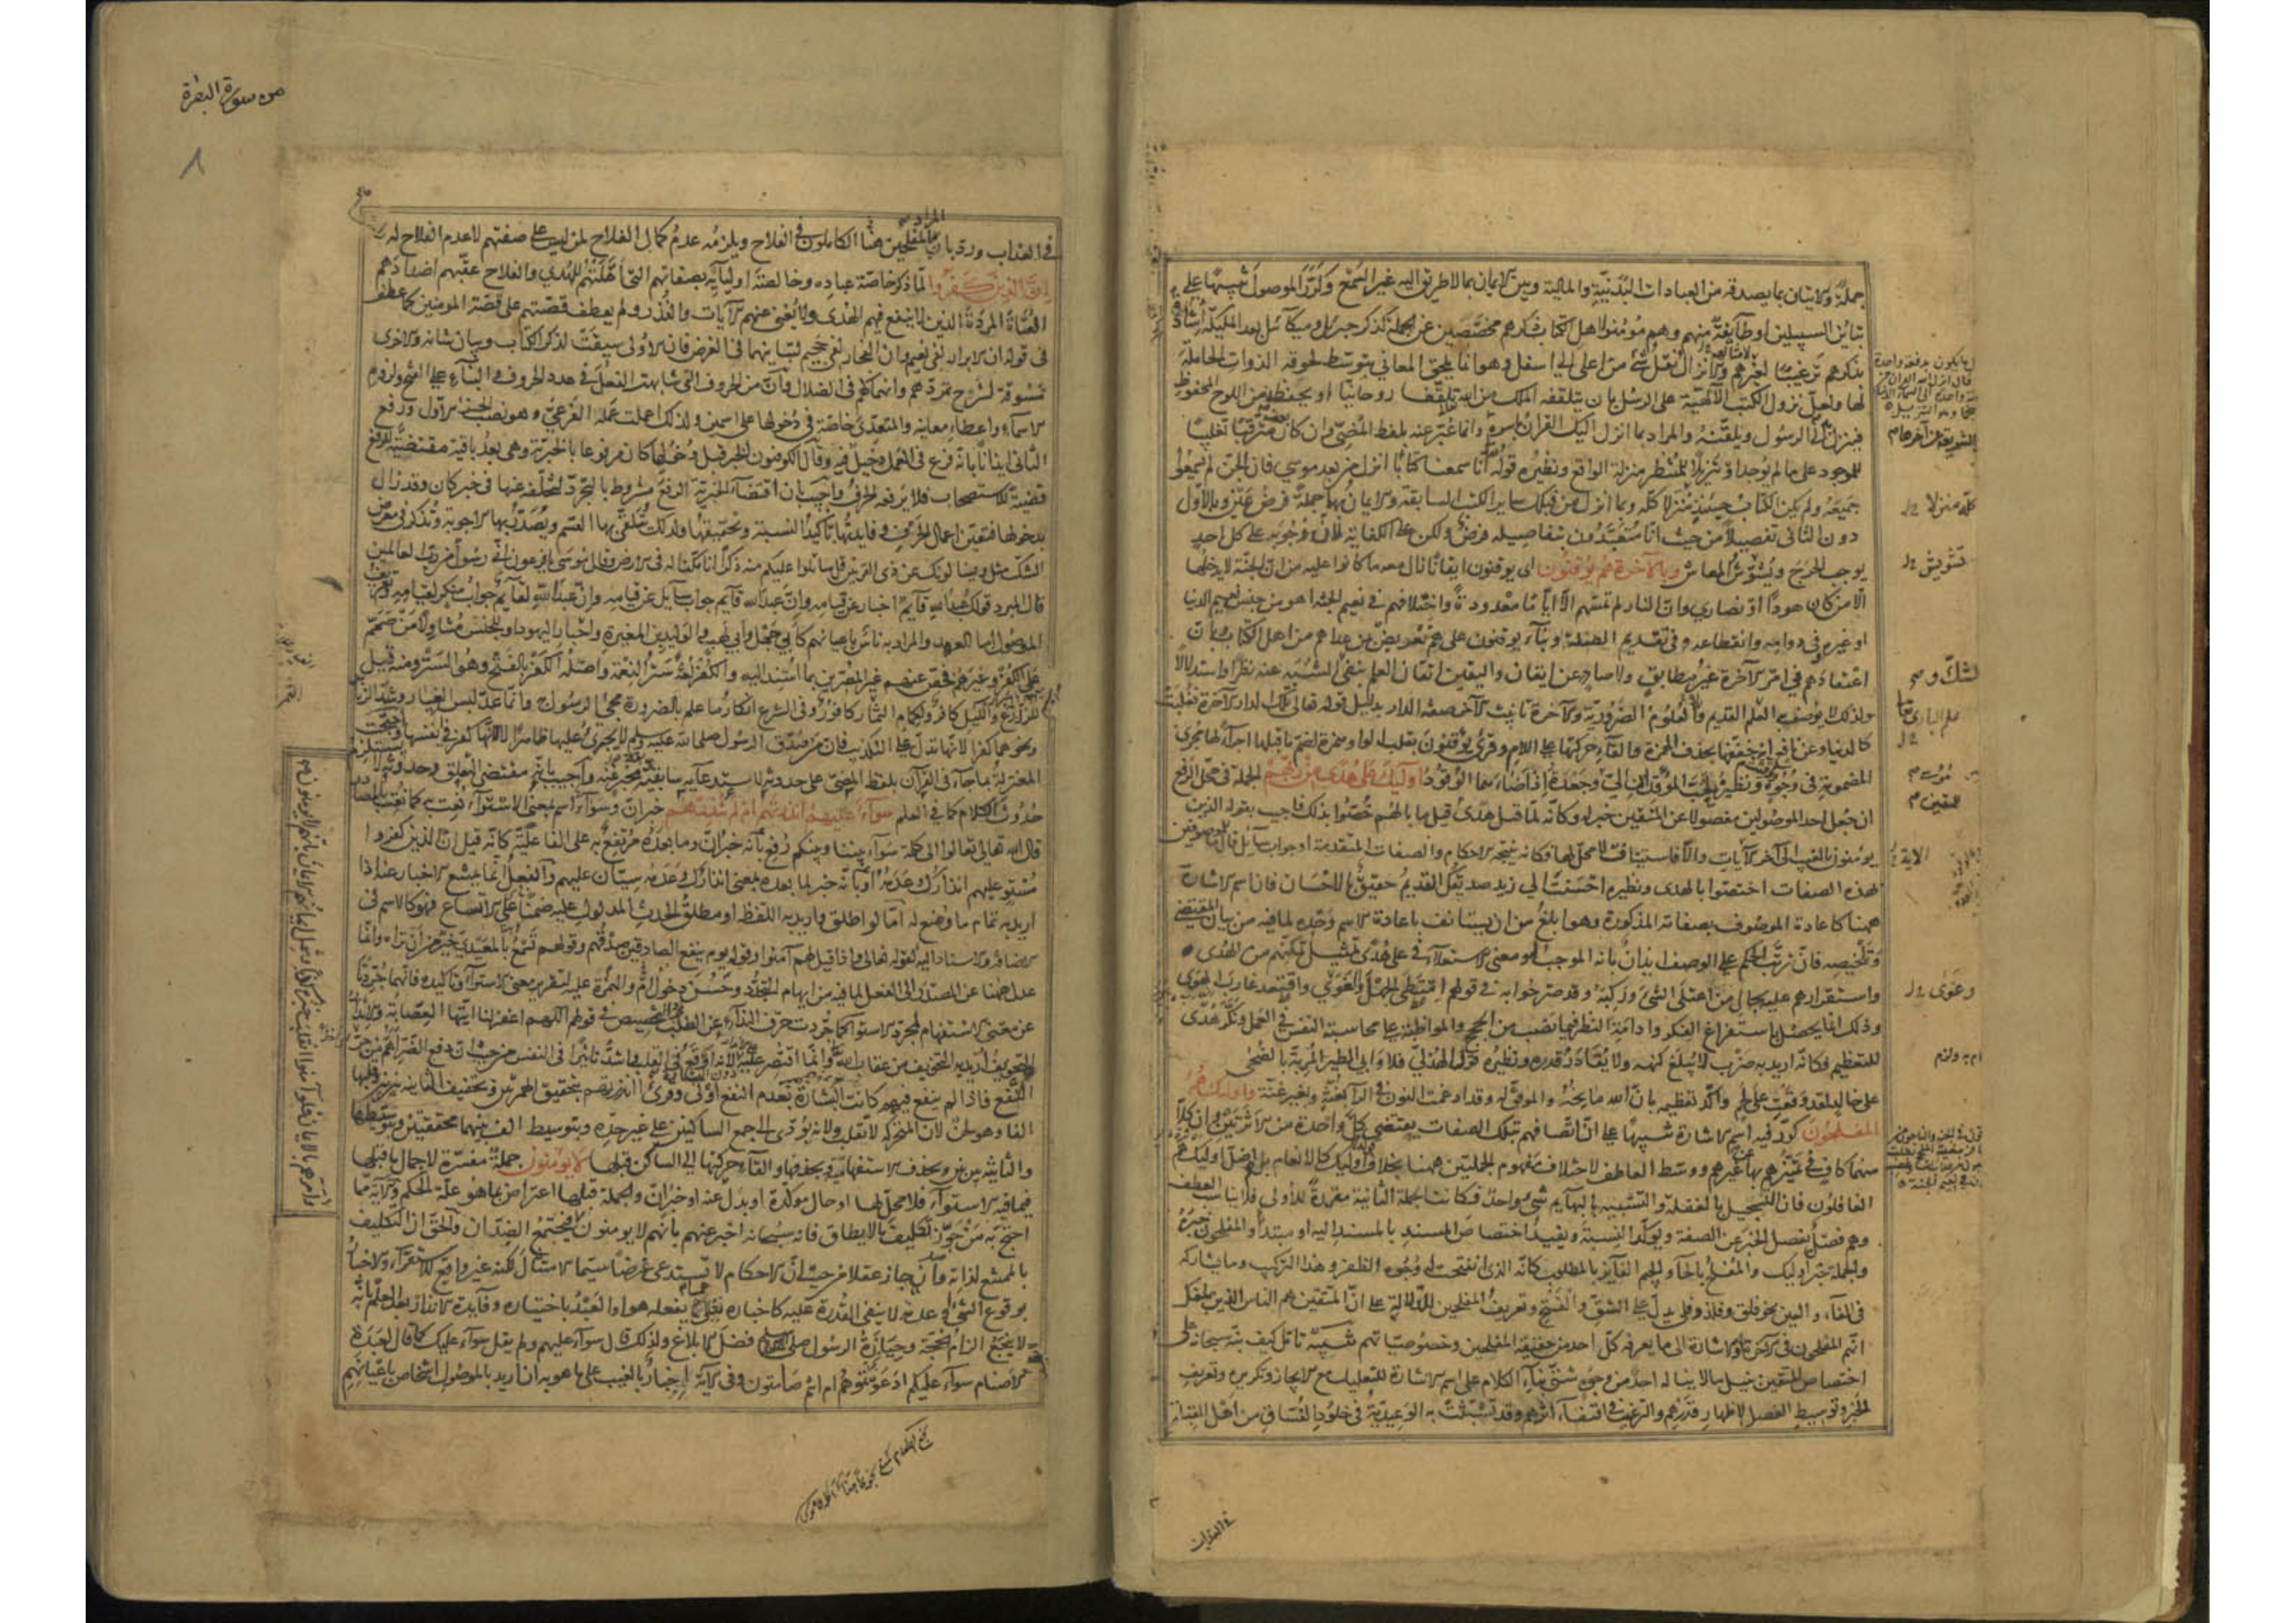 جملةً والاتيان بما يصدقه من العبادات البدنيّة والمالية وبين الايمان بما لا طريق اليه غير السمع وكرّر الموصول تنبيهًا على
تباين السبيلين او طآيفةٌ منهم وهم مُومنوا هل الكتاب ذكرهم مخصّصين عن الجملة كذكر جبريل وميكآئيل بعد المليكة
بذكرهم ترغيبًا لغيرهم والانزال نقل شئ من اعلى الى اسفل وهو انما يلحق المعاني بتوسّط لحوقه الذوات الحاملة
لها ولعلّ نزول الكتب الآلهيّة على الرسُل بان يتلقفه الملك من الله تلقفًا روحانيًا او يحفظه من اللوح المحفوظ
فينزل الى الرسول ويلقّنهُ والمراد بما انزل اليك القرآن باسره وانما عبّر عنه بلفظ المُضىّ وان كان بعضه مترقبًا تغليبًا
للموجود على ما لم يوجد او تنزيلًا للمنتظر منزلة الواقع ونظيره قوله انا سمعنا كتابًا انزل من بعد موسى فان الجن لم يسمعوا
جميعَهُ ولم يكن الكتاب حينئذٍ منزلا كله وبما انزل من قبلك ساير الكتب السابقة والايمان بها جملةً فرض عين وبالاول
دون الثاني تفصيلاً من حيث انّا مُتعبّدُون بتفاصيله فرضٌ ولكن على الكفاية لان وجوبه على كل احدٍ
يوجب الحرج ويُشوّشُ المعاش وبالآخرة هم يُوقنون اى يوقنون ايقانًا زال معه ما كانوا عليه من ان الجنّة لا يدخلها
الّا من كان هودًا او نصارى وان النار لم تمسّهم الّا ايّامًا معدودةً واختلافهم في نعيم الجنّة اهو من جنس نعيم الدنيا
او غيره وفي دوامه وانقطاعه وفي تقديم الصلة وبناء يوقنون على هم تعريضٌ بمن عداهم من اهل الكتاب بان
اعتقادهم في امر الآخرة غيرُ مطابقٍ ولا صادر عن ايقان واليقين اتقان العلم بنفى الشبه عنه نظرًا واستدلالًا
ولذلك لا يُوصف به العلم القديم والعلومُ الضّروريّة والآخرة تانيث الآخر صفة الدار بدليل قوله تعالى تلك الدار الآخرة فغلبت
كالدنيا وعن نافع انه خففها بحذف الهمزة والقآء حركتها على اللام وقرئ يُؤقنون بقلب الواو همزة لضمّ ما قبلها اجراءً لها مجرى
المضمومة في وُجوه ووُقّتت ونظيره لحبّ المؤقدان الىّ مؤسى وجعدة اذ اضاءهما الوقود اولئك على هدى من ربهم الجملة في محل الرفع
ان جُعل احد الموصولين مفصولا عن المتقين خبر له وكانّه لمّا قيل هدًى للمتقين قيل ما بالهُم خُصّوا بذلك فاجيب بقوله الذين
يومنون بالغيب الى آخر الآيات والّا فاستيناف لا محلّ لها فكانه نتيجة الاحكام والصفات المتقدمة او جواب سآيل قال ما للموصوفين
بهذه الصفات اختصّوا بالهدى ونظيره احسنتُ الى زيد صديقك القديم حقيق بالاحسان فان اسم الاشارة
ههنا كاعادة الموصُوف بصفاته المذكورة وهو ابلغُ من ان يستانف باعادة الاسم وحدَه لما فيه من بيان المقتضى
وتلخيصه فان ترتّب الحكم على الوصف ايذانٌ بانه الموجبُ له ومعنى الاستعلآء في على هُدًى تمثيل تمكّنهم من الهُدى
واستقرارهم عليه بحال من اعتلى الشئ وركبَهُ وقد صرّحوا به في قولهم امتطى الجهل والغوى واقتعد غارب الهوى
وذلك انما يحصُل باستفراغ الفكر وادامة النظر فيما نُصب من الحجج والمواظبة على محاسبة النفس في العمل ونكّر هُدًى
للتعظيم فكانّه اريد به ضربٌ لا يُبلغ كنهه ولا يُقادرُ قدره ونظيره قول الهُذلىّ فلا وابى الطير المُربّة بالضُحى
على خالدٍ لقد وقعت على لحم واكّد تعظيمه بانّ الله مانحُهُ والموفّق له وقد ادغمت النون في الرآ بغُنّة وبغير غنّة واولئك هُمُ
المفلحُون كرّر فيه اسم الاشارة تنبيهًا على انّ اتصافهم بتلك الصفات يقتضى كلّ واحدة من الاثرتين وان كلّا
منهما كافٍ في تميّزهم بها عن غيرهم ووسّط العاطف لاختلاف مفهوم الجملتين ههنا بخلاف قوله اولئك كالانعام بل هم اضل اوليك هم
الغافلون فان التسجيل بالغفلة والتشبيه بالبهآيم شئ واحدٌ فكانت الجملة الثانية مقررةً للأولى فلا يناسب العطف
وهم فصلٌ يفصل الخبر عن الصفة ويؤكّد النسبة ويفيد اختصاص المسند بالمسند اليه او مبتدأ والمفلحون خبره
والجملة خبر اوليك والمُفلح بالحآ والجيم الفآيز بالمطلوب كانّه الذى انفتحت له وُجُوه الظفر وهذا التركيب وما يشاركه
في الفآء والعين نحو فلق وفلذ وفلى يدلّ على الشقّ والفتح وتعريفُ المفلحين للدّلالة على انّ المتقين هم الناس الذين بلغك
انّهم المفلحون في الآخرة او الاشارة الى ما يعرفه كلّ احد من حقيقة المفلحين وخصُوصيّاتهم تنبيه تامّل كيف نبّه سبحانه على
اختصاص المتقين بنيل ما لا يناله احدٌ من وجوه شتى بناء الكلام على اسم الاشارة للتعليل مع الايجاز وتكريره وتعريف
الخبر وتوسيط الفصل لاظهار قدرهم والترغيب في اقتفاء اثرهم وقد تشبّثت به الوعيديّة في خلود الفسّاق من اهل القبلة
كله منزلا
تشويش
الشكّ و
مُؤسى
للمتقين
الآية
من سورة البقرة
٨
في العذاب ورد بان المراد بالمفلحين هنا الكاملون في الفلاح ويلزمه عدمُ كمال الفلاح لمن ليس على صفتهم لا عدم الفلاح له راسا
انّ الذين كفرُوا لمّا ذكر خاصّة عباده وخالصة اوليآيه بصفاتهم التى اهّلتهُم للهُدى والفلاح عقّبهم اضدادهم
العُتاة المردة الذين لا ينفع فيهم الهُدى ولا يُغنى عنهم الآيات والنذر ولم يعطف قصّتهم على قصّة المومنين كما عطف
في قوله ان الابرار لفى نعيم وان الفجار لفى جحيم لتباينهما في الغرض فان الاولى سيقت لذكر الكتاب وبيان شانه والاخرى
مَسُوقة لشرح تمرّدهم وانهماكهم في الضلال وانّ من الحروف التى شابهت الفعل في عدد الحروف والبناء على الفتح ولزوم
الاسماء واعطاء معانيه والمتعدّى خاصّة في دُخولها على اسمين ولذلك اعملت عمله الفرعىّ وهو نصب الجزء الاول ورفع
الثانى ايذانًا بانّه فرع في العمل دخيلٌ فيه وقال الكوفيون الخبر قبل دُخُولها كان مرفوعا بالخبريّة وهى بعدُ باقية مقتضيةٌ للرفع
قضيةً للاستصحاب فلا يرفعه الحرف واُجيب بان اقتضآء الخبريّة الرفع مشروط بالتجرّد لتخلّفه عنها في خبر كان وقد زال
بدخولها فتعيّن اعمال الحرف وفايدتُها تاكيد النسبة وتحقيقها ولذلك يُتلقّى بها القسم ويُصدّر بها الاجوبة وتُذكر في معرض
الشك مثل ويسالونك عن ذى القرنين قل ساتلوا عليكم منه ذكرًا انا مكّنّا له في الارض وقال موسى يا فرعون انى رسول من رب العالمين
قال المبرد قولك عبدُ الله قآيمٌ اخبار عن قيامه وانّ عبدَ الله قآيم جواب سآيل عن قيامه وانّ عبدَ الله لقآيم جوابُ منكر لقيامه وتعريف
الموصُول امّا للعهد والمراد به ناس باعيانهم كابى جهل وابى لهب والوليد بن المغيرة واحبار اليهود او للجنس متناولًا من صمّم
على الكفر وغيرهم فخصّ عنهم غير المصرّين بما اُسند اليه والكُفر لغةً ستر النعمة واصلُه الكَفر بالفتح وهو السّتر ومنه قيل
للزّارع والليل كافرٌ ولكمام الثمار كافورٌ وفى الشرع انكارُ ما علم بالضرورة مجئ الرسُول به وانّما عدّ لبس الغيار وشدّ الزنار
ونحوهما كفرًا لانّها تدلّ على التكذيب فان من صدّق الرسول صلى الله عليه وسلم لا يجترئ عليها ظاهرًا لا لانّها كفرٌ في انفسها واحتجّت
المعتزلةُ بما جآء في القرآن بلفظ المضىّ على حدوثه لاستدعآئه سابقة مخبر عنه واُجيب بانّه مقتضى التعلّق وحدوثه لا يستلزم
حُدُوث الكلام كما في العلم سوآءٌ عليهم ءأنذرتهم ام لم تنذرهم خبر انّ وسوآءٌ اسم بمعنى الاستوآء نُعت به كما نُعت بالمصادر
قال الله تعالى تعالوا الى كلمة سوآء بيننا وبينكم رُفع بانّه خبر انّ وما بعدَه مرتفعٌ به على الفاعليّة كانّه قيل انّ الذين كفروا
مُستوٍ عليهم انذارك وعدمُهُ او بانّه خبر لما بعده بمعنى انذارك وعدمُه سيّان عليهم والفعل انّما يمتنع الاخبار عنه اذا
اريد به تمام ما وُضع له امّا لو اطلق واريد به اللفظ او مطلق الحدث المدلول عليه ضمنًا على الاتساع فهو كالاسم في
الاضافة والاسناد اليه كقوله تعالى واذا قيل لهم آمنوا وقوله يوم ينفع الصادقين صدقُهم وقولهم تسمع بالمعيدىّ خيرٌ من ان تراه وانّما
عدل ههنا عن المصدر الى الفعل لما فيه من ايهام التجدّد وحسُن دخول الهمزة وام عليه لتقرير معنى الاستوآء وتاكيده فانهما جُرّدتا
عن معنى الاستفهام لمجرّد الاستوآء كما جُرّدت حرف الندآء عن الطلب لمجرّد التخصيص في قولهم اللهم اغفر لنا ايّتها العصابة والانذار
التخويف اُريد به التخويف من عقاب الله وانّما اقتُصر عليه دون البشارة لانّه اوقع في القلب واشدّ تاثيرًا في النفس من حيث ان دفع الضرّ اهم من جلب
النفع فاذا لم ينفع فيهم كانت البشارة بعدم النفع اولى وقرئ ءأنذرتهم بتحقيق الهمزتين وتخفيف الثانية بين بين وقلبها
الفا وهو لحنٌ لان المتحركة لا تقلب ولانّه يُؤدّى الى جمع الساكنين على غير حدّه وبتوسيط الف بينهما محققتين وبتوسيطها
والثانية بين بين وبحذف الاستفهامية وبحذفها والقآء حركتها الى الساكن قبلها لا يومنون جملةٌ مفسّرة لاجمال ما قبلها
فيما فيه الاستوآء فلا محلّ لها او حال موكّدة او بدل عنه او خبر انّ والجملة قبلها اعتراض بما هو علّة الحكم والآية ممّا
احتجّ به من جوّز تكليف ما لا يطاق فانّه سبحانه اخبر عنهم بانّهم لا يومنون فيجتمعُ الضدّان والحقّ ان التكليف
بالممتنع لذاته وان جاز عقلا من حيثُ انّ الاحكام لا تستدعى غرضًا سيّما الامتثال لكنه غير واقع للاستقرآء والاخبارُ
بوقوع الشئ او عدمه لا ينفى القُدرة عليه كاخباره تعالى عما يفعله هو او العبدُ باختياره وفايدة الانذار بعد العلم بانّه
لا ينجع الزام الحُجّة وحيازةُ الرسول صلى الله عليه وسلم فضل الابلاغ ولذلك قال سوآء عليهم ولم يقل سوآء عليك كما قال لعبدة
الاصنام سوآءٌ عليكم ادعوتموهم ام انتم صامتون وفى الآية اخبارٌ بالغيب على ما هو به ان اريد بالموصول اشخاص باعيانهم